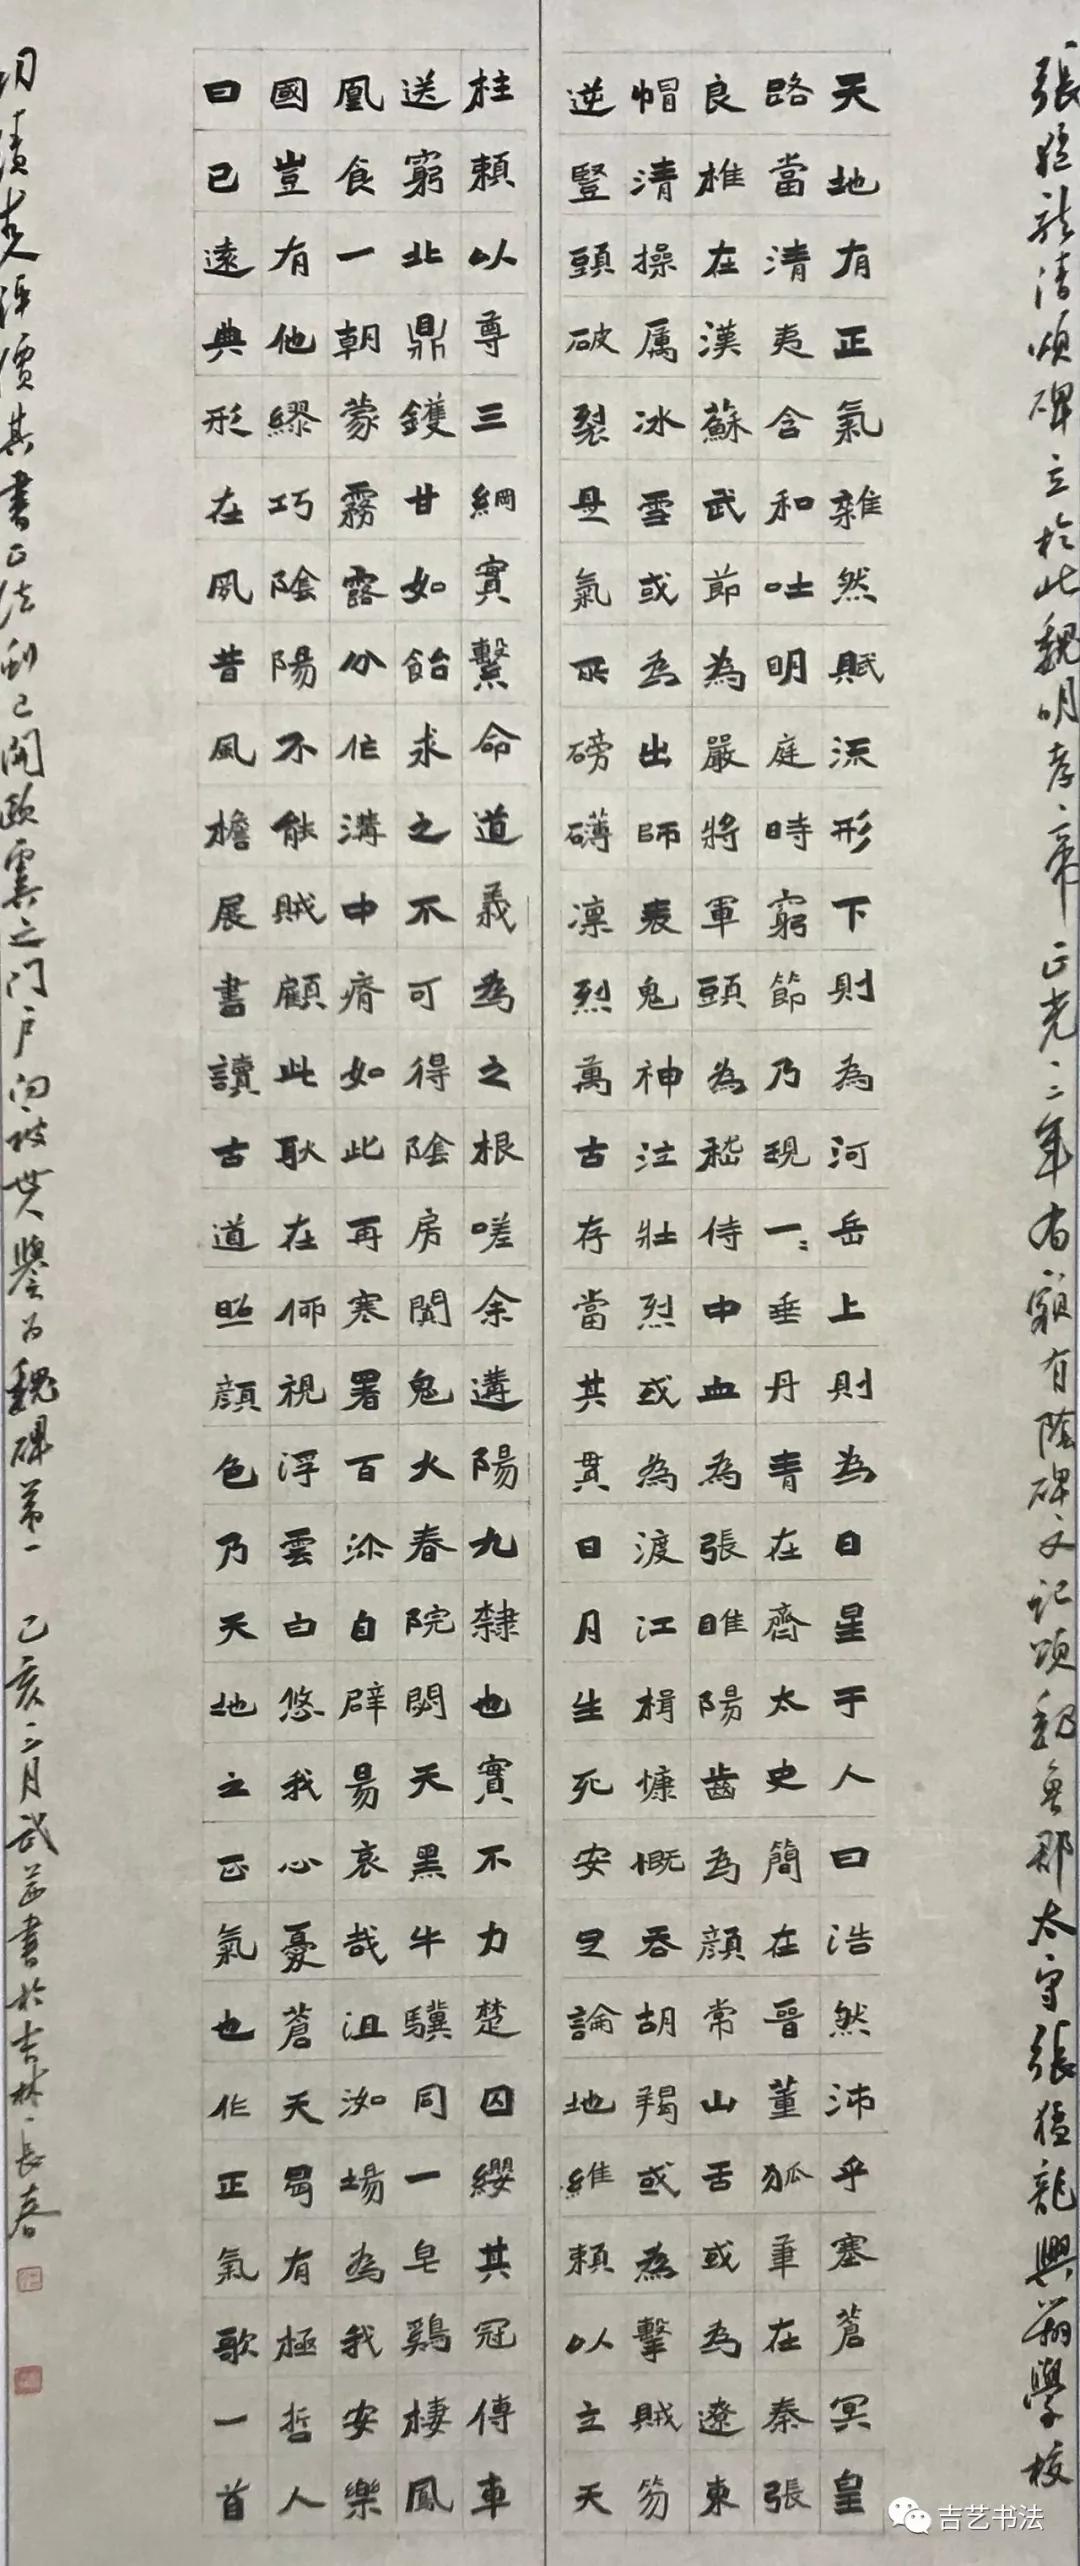 張猛龍清頌碑立於北魏明孝帝正光三年有額有陰碑文記頌魏魯郡太守張猛龍興辦學校
天地有正氣雜然賦流形下則為河岳上則為日星于人曰浩然沛乎塞蒼冥皇
路當清夷含和吐明庭時窮節乃現一二垂丹青在齊太史簡在晉董狐筆在秦張
良椎在漢蘇武節為嚴將軍頭為嵇侍中血為張睢陽齒為顏常山舌或為遼東
帽清操厲冰雪或為出師表鬼神泣壯烈或為渡江楫慷慨吞胡羯或為擊賊笏
逆豎頭破裂是氣所磅礴凛烈萬古存當其貫日月生死安足論地維賴以立天
柱賴以尊三綱實繫命道義為之根嗟余遘陽九隸也實不力楚囚纓其冠傳車
送窮北鼎鑊甘如飴求之不可得陰房闐鬼火春院閟天黑牛驥同一皂鷄棲鳳
凰食一朝蒙霧露分作溝中瘠如此再寒署百沴自辟易哀哉沮洳場為我安樂
國豈有他繆巧陰陽不能賊顧此耿在仰視浮雲白悠我心憂蒼天曷有極哲人
日已遠典形在夙昔風檐展書讀古道照顏色乃天地之正氣也作正氣歌一首
功績古人評價其書正法虬已開歐虞之门户向被世人譽为魏碑第一 己亥二月武 書於吉林長春
吉艺书法